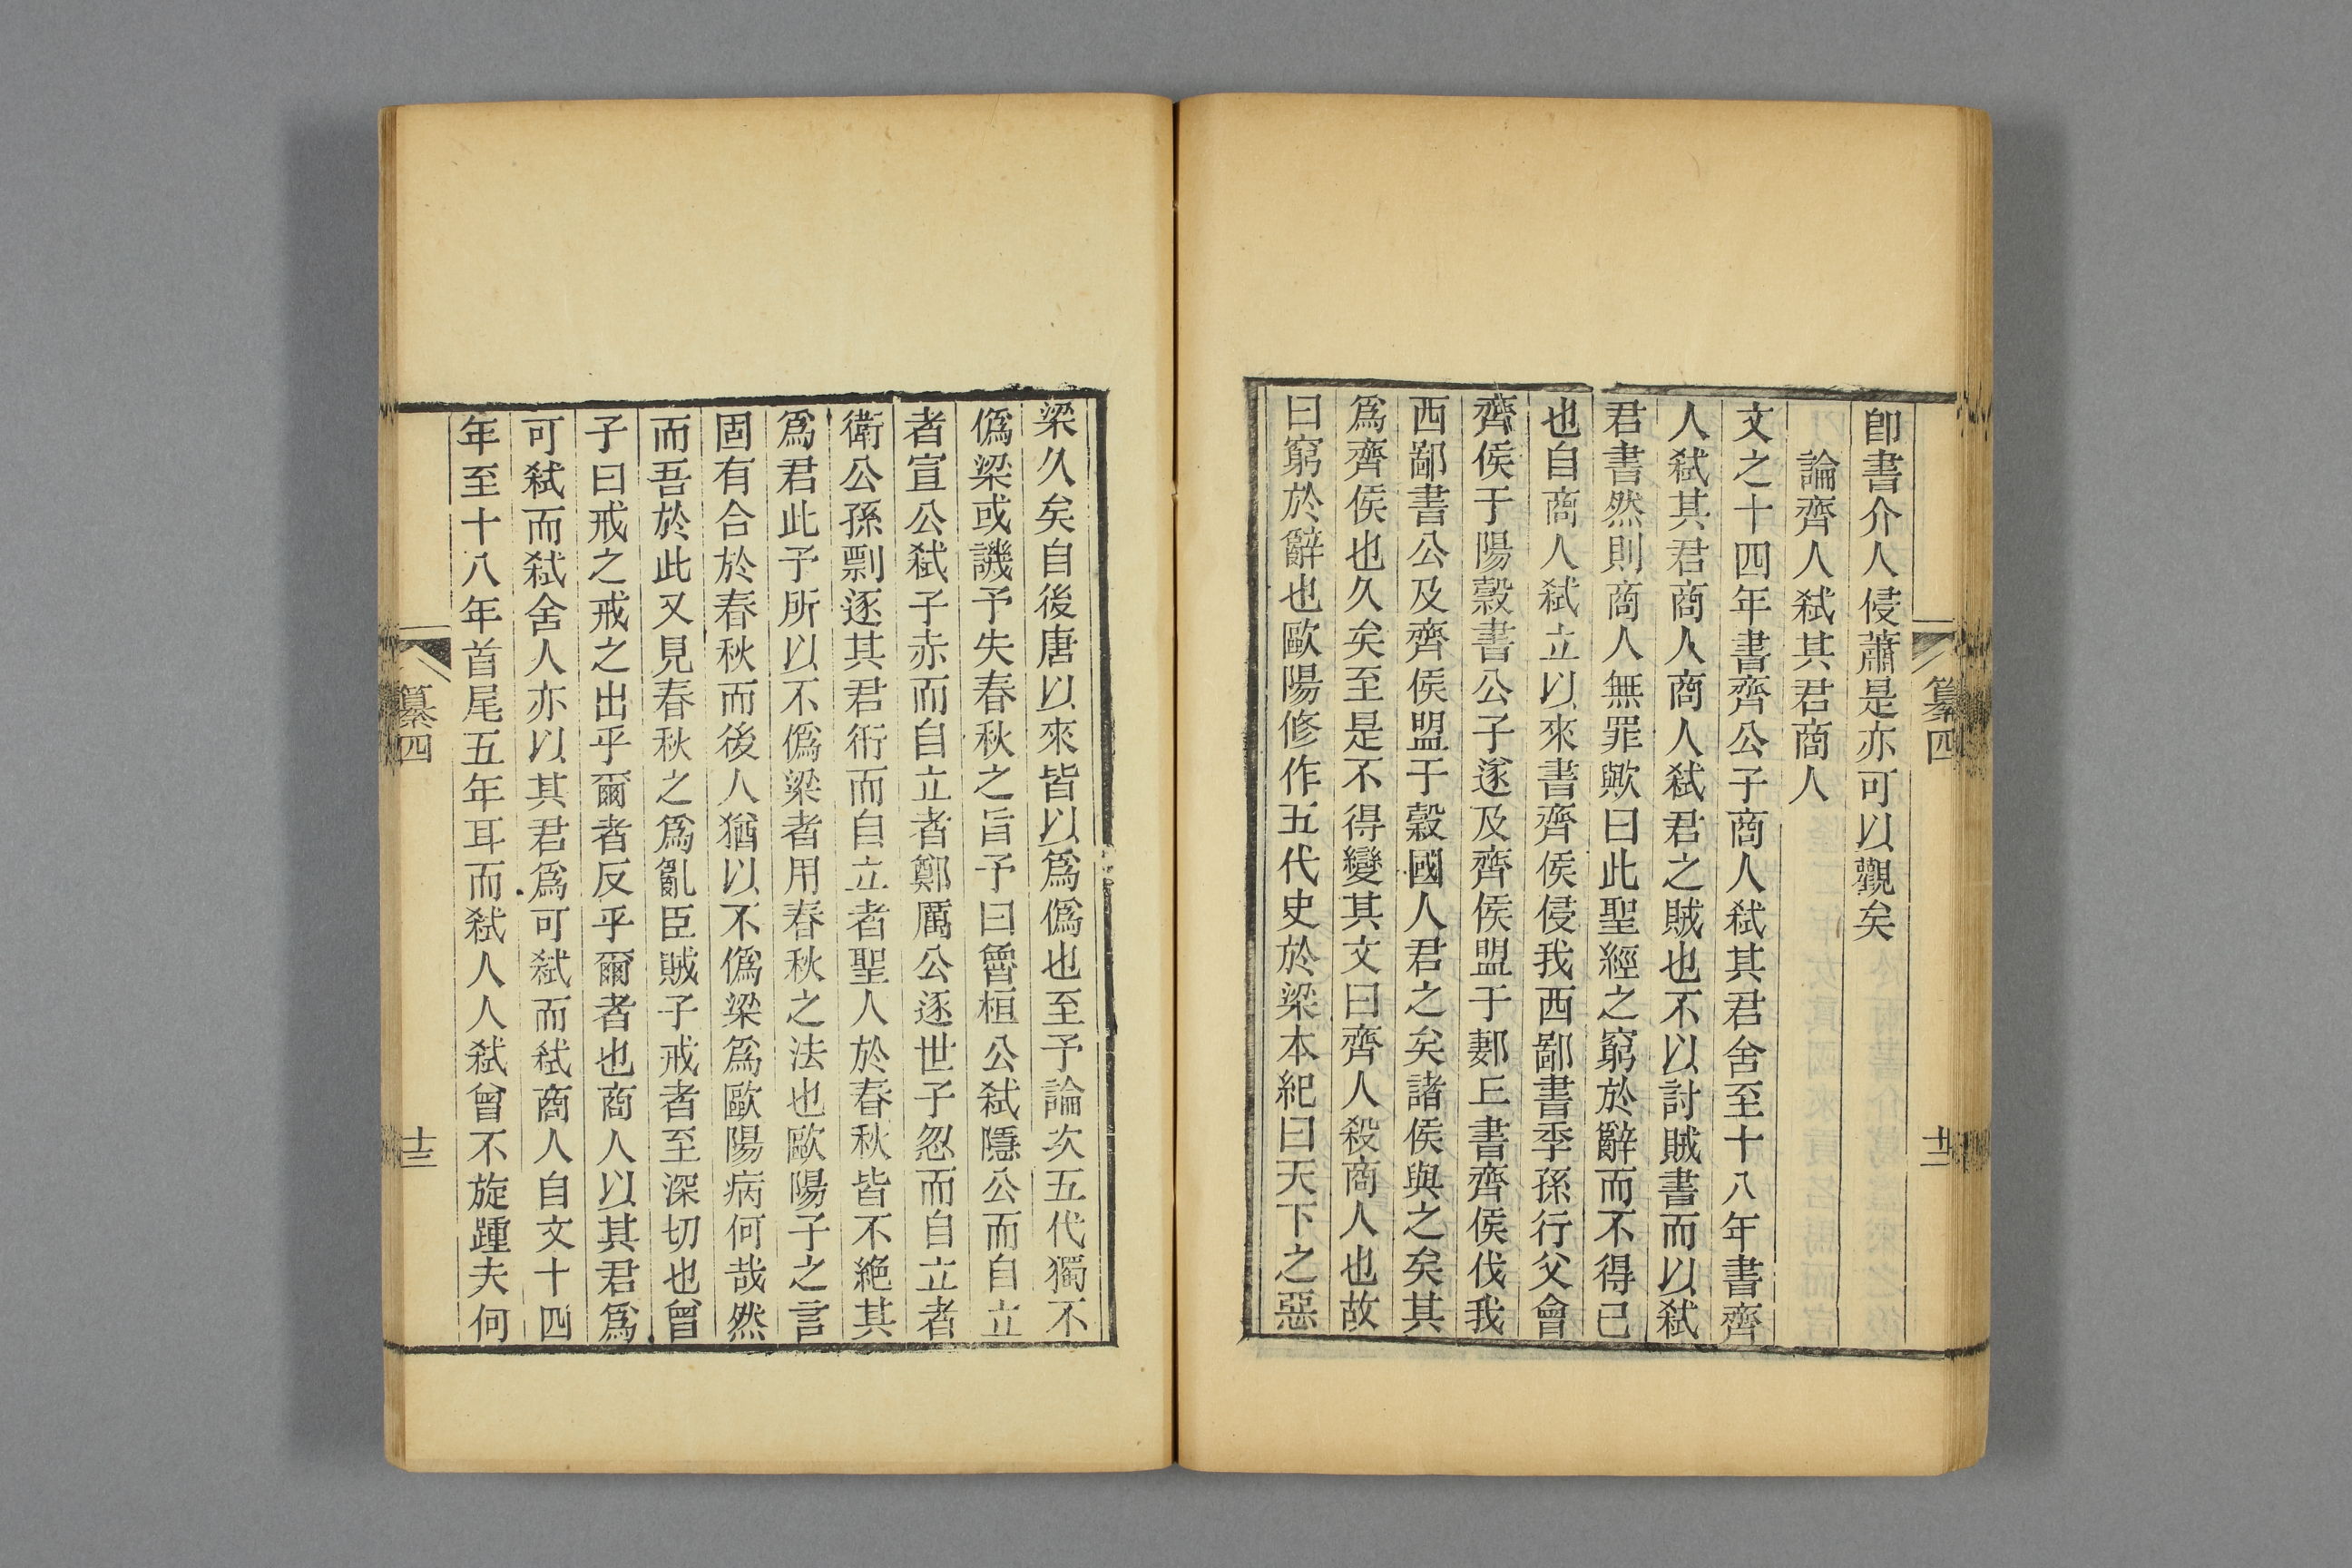 卽書介人侵蕭是亦可以觀矣
論齊人弒其君商人
文之十四年書齊公子商人弒其君舍至十八年書齊
人弒其君商人商人弒君之賊也不以討賊書而以弒
君書然則商人無罪歟曰此聖經之窮於辭而不得已
也自商人弒立以來書齊侯侵我西鄙書季孫行父會
齊侯于陽穀書公子遂及齊侯盟于郪丘書齊侯伐我
西鄙書公及齊侯盟于穀國人君之矣諸侯與之矣其
爲齊侯也久矣至是不得變其文曰齊人殺商人也故
曰窮於辭也歐陽修作五代史於梁本紀曰天下之惡
纂四
十二
梁久矣自後唐以來皆以爲僞也至予論次五代獨不
僞梁或譏予失春秋之旨予曰魯桓公弒隱公而自立
者宣公弒子赤而自立者鄭厲公逐世子忽而自立者
衛公孫剽逐其君衎而自立者聖人於春秋皆不絶其
爲君此予所以不僞梁者用春秋之法也歐陽子之言
固有合於春秋而後人猶以不僞梁爲歐陽病何哉然
而吾於此又見春秋之爲亂臣賊子戒者至深切也曾
子曰戒之戒之出乎爾者反乎爾者也商人以其君爲
可弒而弒舍人亦以其君爲可弒而弒商人自文十四
年至十八年首尾五年耳而弒人人弒曾不旋踵夫何
纂四
十三